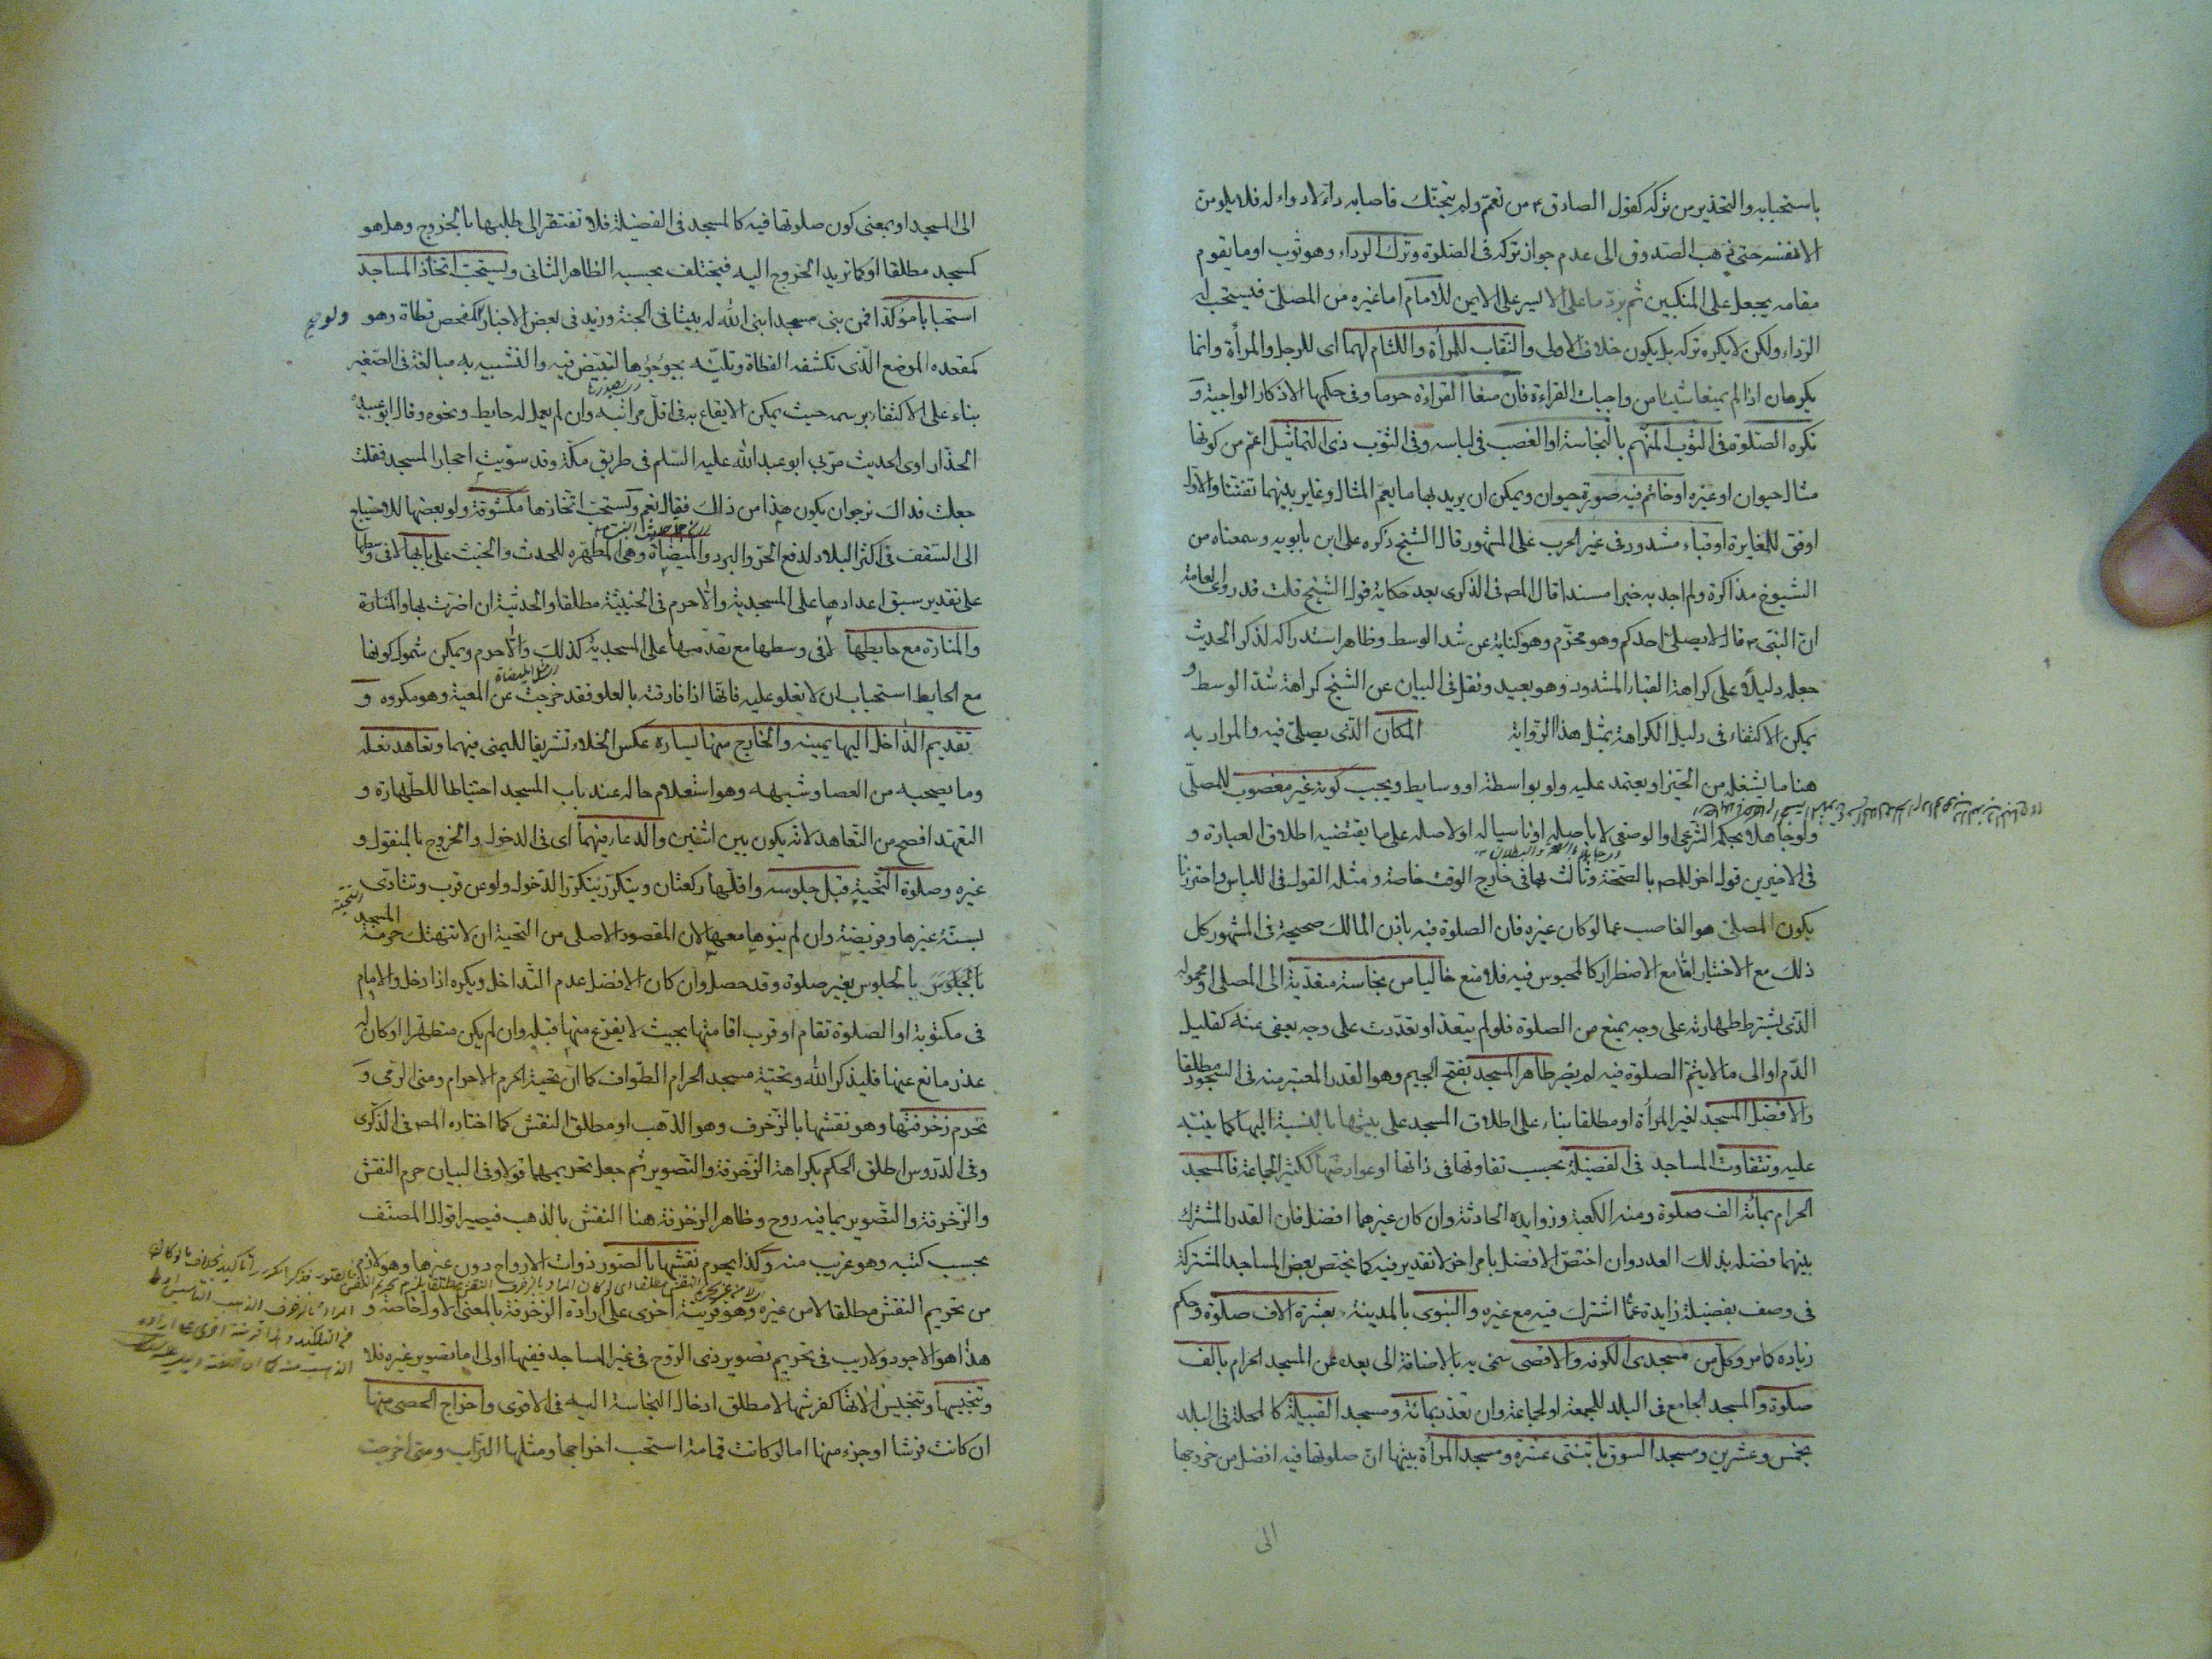 باستحبابه والتحذير من تركه كقول الصادق ع من تعمم ولم يتحنك فاصابه داء لا دواء له فلا يلومن
الا نفسه حتى ذهب الصدوق الى عدم جواز تركه في الصلوة وترك الرداء وهو ثوب او ما يقوم
مقامه يجعل على المنكبين ثم يرد ما على الايسر على الايمن للامام اما غيره من المصلين فيستحب له
الرداء ولكن لا يكره تركه بل يكون خلاف الاولى والنقاب للمرأة واللثام لهما اى للرجل والمرأة وانما
يكرهان اذا لم يمنعا شيئا من واجبات القراءة فان منعا القراءة حرما وفى حكمها الاذكار الواجبة و
تكره الصلوة فى الثوب المتهم بالنجاسة او الغصب فى لباسه وفى الثوب ذى التماثيل اعم من كونها
مثال حيوان او غيره او خاتم فيه صورة حيوان ويمكن ان يريد بها ما يعم المثال وغاير بينهما تفننا والاول
اوفق للمغايرة او قباء مشدود فى غير الحرب على المشهور قال الشيخ ذكره على ابن بابويه وسمعناه من
الشيوخ مذاكرة ولم اجد به خبرا مسندا قال المص فى الذكرى بعد حكاية قول الشيخ قلت قد روى العامة
ان النبى ص قال لا يصلى احدكم وهو محزم وهو كناية عن شد الوسط وظاهر استدراكه لذكر الحديث
جعله دليلا على كراهة القباء المشدود وهو بعيد ونقل فى البيان عن الشيخ كراهة شد الوسط و
يمكن الاكتفاء فى دليل الكراهة بمثل هذا الرواية المكان الذى يصلى فيه والمراد به
هنا ما يشغله من الحيز او يعتمد عليه ولو بواسطة او وسايط ويجب كونه غير مغصوب للمصلى
ولو جاهلا بحكمه الشرعى او الوضعى لا باصله او ناسيا له او لاصله على ما يقتضيه اطلاق العبارة و
فى الاخيرين قول اخر للمص بالصحة وثالث بها فى خارج الوقت خاصة ومثله القول فى اللباس واحترزنا
بكون المصلى هو الغاصب عما لو كان غيره فان الصلوة فيه باذن المالك صحيحة فى المشهور كل
ذلك مع الاختيار اما مع الاضطرار كالمحبوس فيه فلا منع خاليا من نجاسة متعدية الى المصلى او محموله
الذى يشترط طهارته على وجه يمنع من الصلوة فلو لم يتعد او تعدت على وجه يعفى عنه كقليل
الدم او الى ما لا يتم الصلوة فيه لم يضر طاهر المسجد بفتح الجيم وهو القدر المعتبر منه فى السجود مطلقا
والافضل المسجد لغير المرأة او مطلقا بناء على اطلاق المسجد على بيتها بالنسبة اليها كما ينبه
عليه وتتفاوت المساجد فى الفضيلة بحسب تفاوتها فى ذاتها او عوارضها ككثير الجماعة فالمسجد
الحرام بمائة الف صلوة ومنه الكعبة وزوايده الحادثة وان كان غيرهما افضل فان القدر المشترك
بينهما فضله بذلك العدد وان اختص الافضل بامر اخر لا تقدير فيه كما يختص بعض المساجد المشتركة
فى وصف بفضيلة زايدة عما اشترك فيه مع غيره والنبوى بالمدينة بعشرة الاف صلوة وحكم
زيادة كما مر وكل من مسجدى الكوفة والاقصى سمى به بالاضافة الى بعده عن المسجد الحرام بالف
صلوة والمسجد الجامع فى البلد للجمعة او الجماعة وان تعذر بمائة ومسجد القبيلة كالمحلة فى البلد
بخمس وعشرين ومسجد السوق باثنتى عشرة ومسجد المرأة بيتها ان صلوتها فيه افضل من خروجها
الى
الى المسجد او بمعنى كون صلوتها فيه كالمسجد فى الفضيلة فلا تفتقر الى طلبها بالخروج وهل هو
كمسجد مطلقا او كما تريد الخروج اليه فيختلف بحسبه الظاهر الثانى ويستحب اتخاذ المساجد
استحبابا مؤكدا فمن بنى مسجدا بنى الله له بيتا فى الجنة وزيد فى بعض الاخبار كمفحص قطاة وهو
كمقعده الموضع الذى تكشفه القطاة وتلينه بجوجؤها لتبيض فيه والتشبيه به مبالغة فى الصغر
بناء على الاكتفاء برسمه حيث يمكن الانتفاع به فى اقل مراتبه وان لم يعمل له حايط ونحوه وقال ابو عبيدة
الحذاء راوى الحديث مر بى ابو عبد الله عليه السلم فى طريق مكة وقد سويت احجار المسجد فقلت
جعلت فداك نرجو ان يكون هذا من ذاك فقال نعم ويستحب اتخاذها مكشوفة ولو بعضها للاحتياج
الى السقف فى اكثر البلاد لدفع الحر والبرد والميضاة وهى المطهرة للحدث والخبث على بابها لا فى وسطها
على تقدير سبق اعدادها على المسجدية والا حرم فى الخبثية مطلقا والحدثية ان اضرت بها والمنارة
والمنارة مع حايطها لا فى وسطها مع تقدمها على المسجدية كذلك والا حرم ويمكن شمول كونها
مع الحايط استحباب ان لا تعلو عليه فانها اذا فارقته بالعلو فقد خرجت عن المعية وهو مكروه و
تقديم الداخل اليها يمينه والخارج منها يساره عكس الخلاء تشريفا لليمنى فيهما وتعاهد نعله
وما يصحبه من العصا وشبهه وهو استعلام حاله عند باب المسجد احتياطا للطهارة و
التعهد افصح من التعاهد لانه يكون بين اثنين والدعاء فيهما اى فى الدخول والخروج بالمنقول و
غيره وصلوة التحية قبل جلوسه واقلها ركعتان ويتكرر بتكرر الدخول ولو عن قرب وتتادى
بسنة غيرها وفريضة وان لم ينوها معها لان المقصود الاصلى من التحية ان لا تنهتك حرمة المسجد
بالجلوس بالجلوس بغير صلوة وقد حصل وان كان الافضل عدم التداخل ويكره اذا دخل والامام
فى مكتوبة او الصلوة تقام او قرب اقامتها بحيث لا يفرغ منها قبله وان لم يكن متطهرا او كان له
عذر مانع عنها فليذكر الله وتحية مسجد الحرام الطواف كما ان تحية الحرم الاحرام ومنى الرمى و
تحرم زخرفتها وهو نقشها بالزخرف وهو الذهب او مطلق النقش كما اختاره المص فى الذكرى
وفى الدروس اطلق الحكم بكراهة الزخرفة والتصوير ثم جعل تحريمهما قولا وفى البيان حرم النقش
والزخرفة والتصوير بما فيه روح وظاهر الزخرفة هنا النقش بالذهب فيصير اقوال المصنف
بحسب كتبه وهو غريب منه وكذا يحرم نقشها بالصور ذوات الارواح دون غيرها وهو لازم
من تحريم النقش مطلقا لا من غيره وهو قرينة اخرى على ارادة الزخرفة بالمعنى الاول خاصة و
هذا هو الاجود ولا ريب فى تحريم تصوير ذى الروح فى غير المساجد ففيها اولى اما تصوير غيره فلا
وتنجيسها وتنجيس الاتها كفرشها لا مطلق ادخال النجاسة اليه فى الاقوى واخراج الحصى منها
ان كانت فرشا او جزء منها اما لو كانت قمامة استحب اخراجها ومثلها التراب ومتى اخرجت